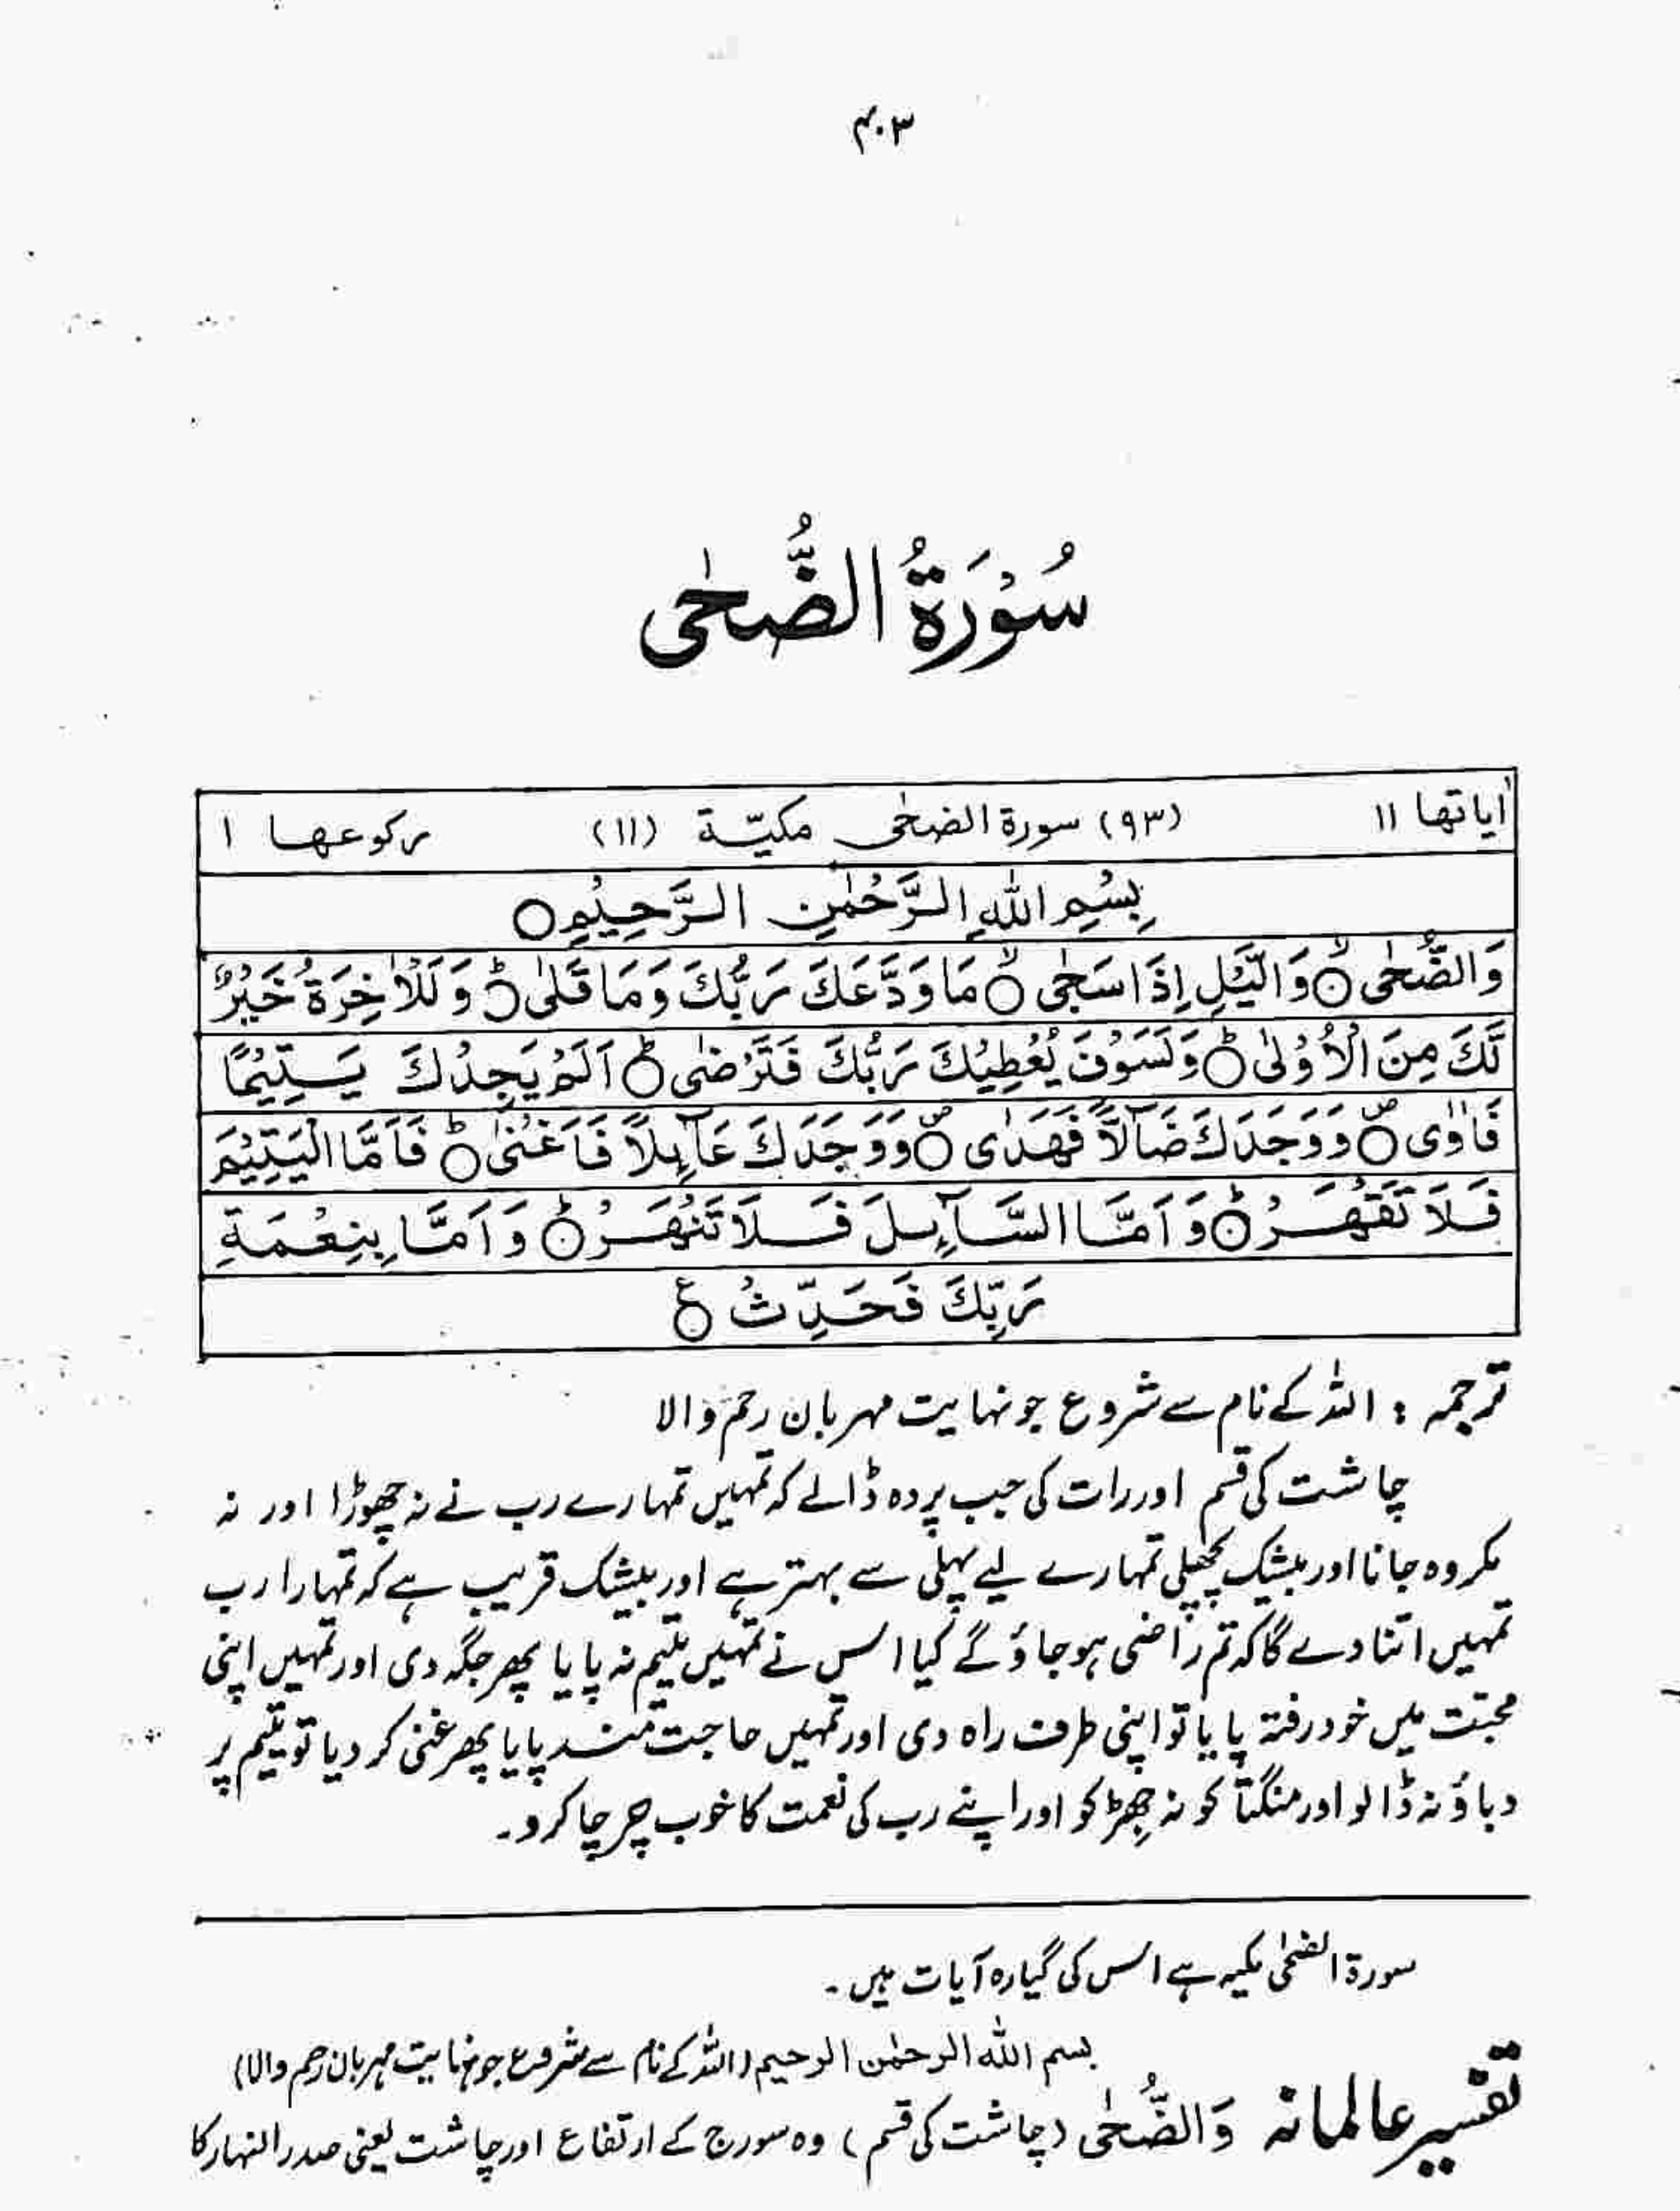 ۴۰۳
سُوْرَةُ الضُّحٰى
اٰیاتها ۱۱ (۹۳) سورة الضحٰی مکیّة (۱۱) رکوعها ۱
بِسْمِ اللّٰهِ الرَّحْمٰنِ الرَّحِیْمِ○
وَالضُّحٰى○ۙ وَالَّیْلِ اِذَا سَجٰى○ۙ مَا وَدَّعَكَ رَبُّكَ وَمَا قَلٰى○ؕ وَلَلْاٰخِرَةُ خَیْرٌ
لَّكَ مِنَ الْاُوْلٰى○ؕ وَلَسَوْفَ یُعْطِیْكَ رَبُّكَ فَتَرْضٰى○ؕ اَلَمْ یَجِدْكَ یَتِیْمًا
فَاٰوٰى○۪ وَوَجَدَكَ ضَآلًّا فَهَدٰى○۪ وَوَجَدَكَ عَآىِٕلًا فَاَغْنٰى○ؕ فَاَمَّا الْیَتِیْمَ
فَلَا تَقْهَرْ○ؕ وَاَمَّا السَّآىِٕلَ فَلَا تَنْهَرْ○ؕ وَاَمَّا بِنِعْمَةِ
رَبِّكَ فَحَدِّثْ○ع
ترجمہ : اللہ کے نام سے شروع جو نہایت مہربان رحم والا
چاشت کی قسم اور رات کی جب پردہ ڈالے کہ تمہیں تمہارے رب نے نہ چھوڑا اور نہ
مکروہ جانا اور بیشک پچھلی تمہارے لیے پہلی سے بہتر ہے اور بیشک قریب ہے کہ تمہارا رب
تمہیں اتنا دے گا کہ تم راضی ہو جاؤ گے کیا اس نے تمہیں یتیم نہ پایا پھر جگہ دی اور تمہیں اپنی
محبت میں خود رفتہ پایا تو اپنی طرف راہ دی اور تمہیں حاجت مند پایا پھر غنی کر دیا تو یتیم پر
دباؤ نہ ڈالو اور منگتا کو نہ جھڑکو اور اپنے رب کی نعمت کا خوب چرچا کرو۔
سورة الضحٰی مکیہ ہے اس کی گیارہ آیات ہیں۔
بسم اللہ الرحمٰن الرحیم (اللہ کے نام سے شروع جو نہایت مہربان رحم والا)
تفسیر عالمانہ وَالضُّحٰى (چاشت کی قسم) وہ سورج کے ارتفاع اور چاشت یعنی صدر النہار کا